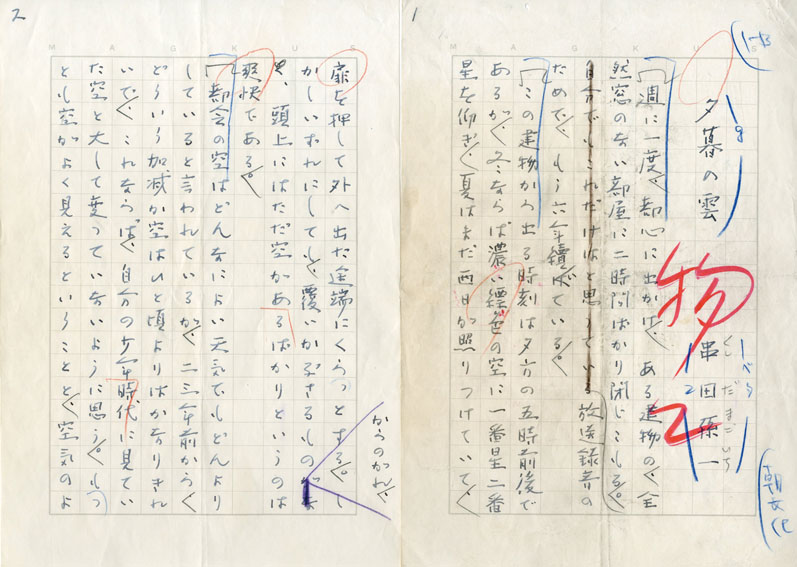 1
夕暮の雲
くしだまごいち
串田孫一
物
2
週に一度、都心に出かけ、ある建物の、全
然窓のない部屋に二時間ばかり閉じこもる。
自分でもこれだけはと思っている放送録音の
ためで、もう六年續けている。
この建物から出る時刻は夕方の五時前後で
あるが、冬ならば濃い縹色の空に一番星二番
星を仰ぎ、夏はまだ西日が照りつけていて、
2
S U K G A M
からのがれ、
扉を押して外へ出た途端にくらっとする。し
かしいずれにしても、覆いかぶさるものがな
く、頭上にはただ空があるばかりというのは
爽快である。
都会の空はどんなによい天気でもどんより
していると言われているが、二三年前から、
どういう加減か空はひと頃よりはかなりきれ
いで、これならば、自分の少年時代に見てい
た空と大して変っていないように思う。もっ
とも空がよく見えるということと、空気のよ